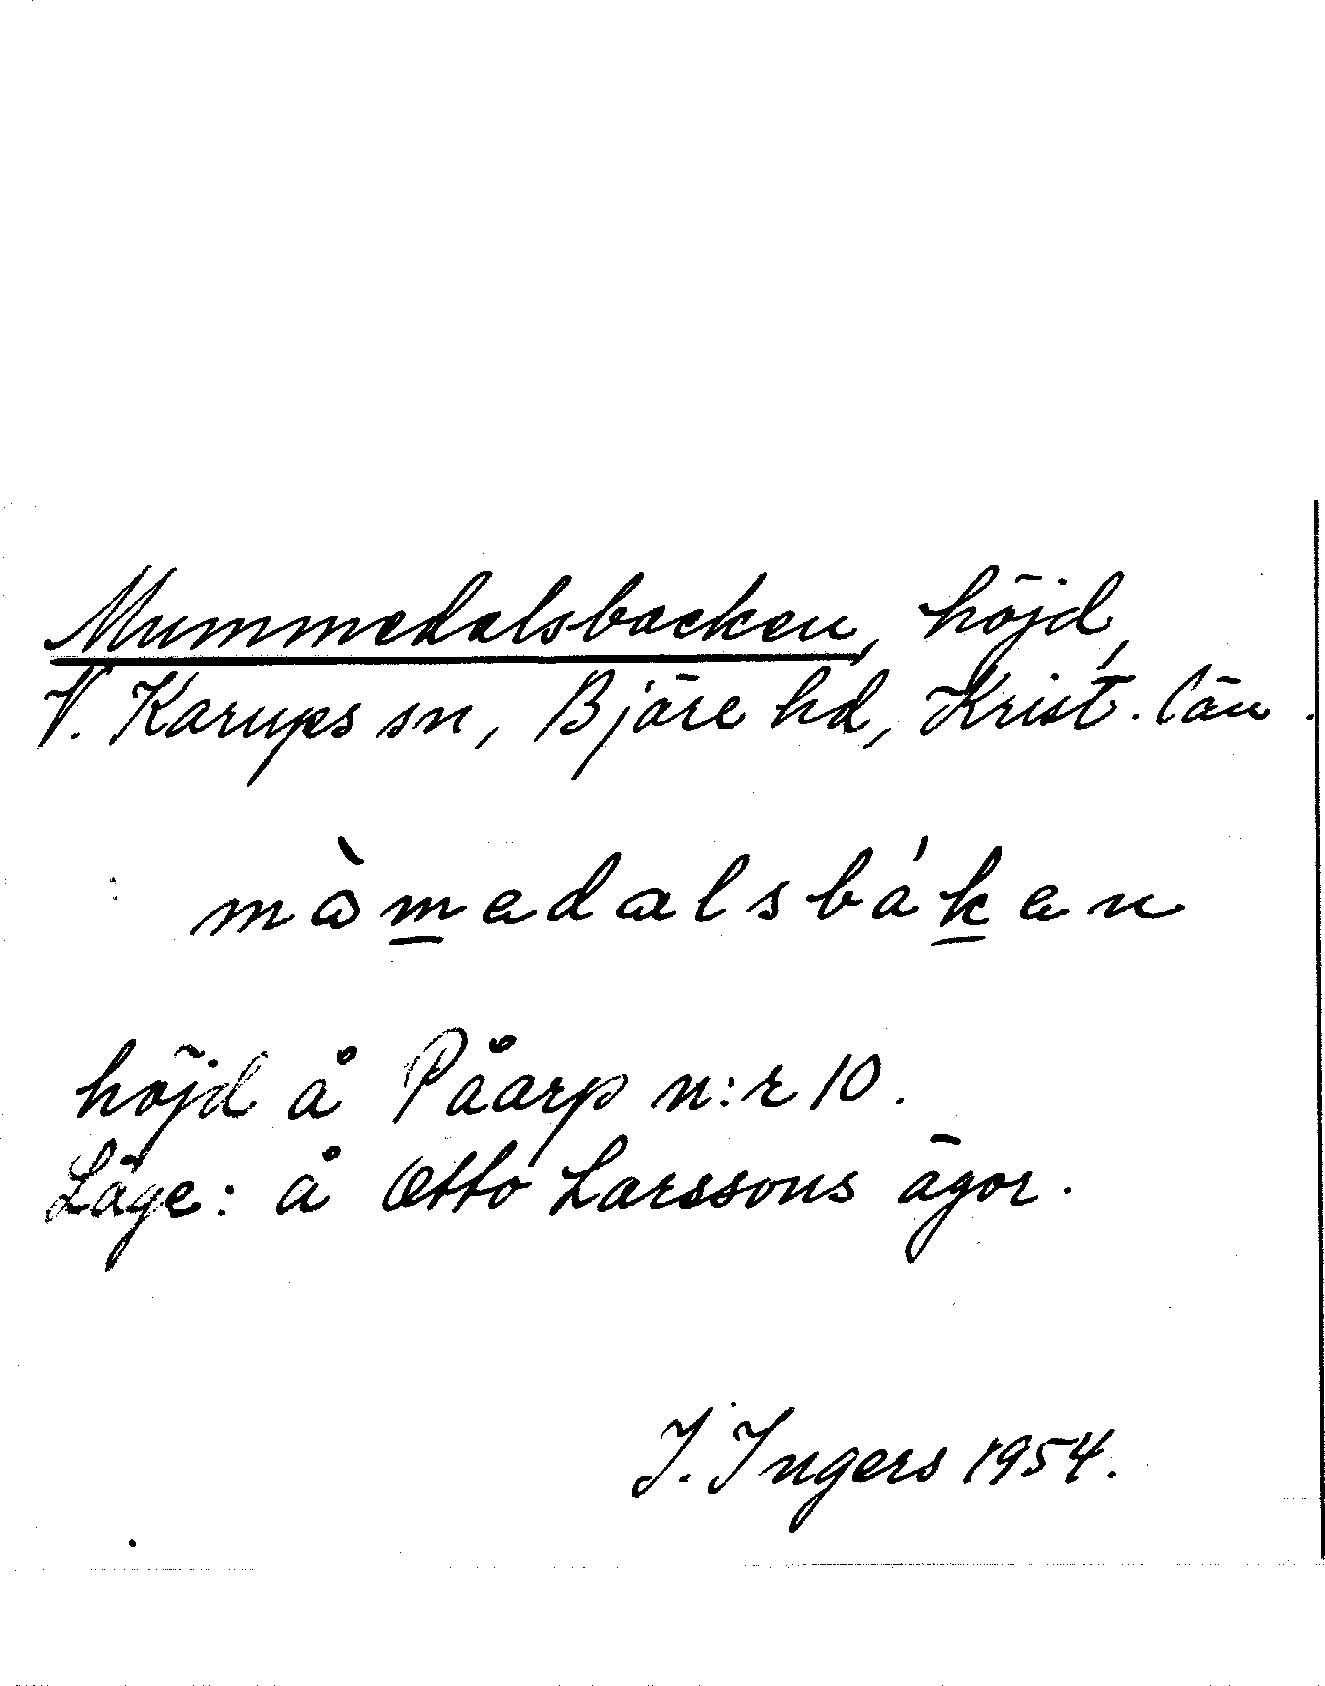 Mummedalsbacken, höjd,
V. Karups sn, Bjäre hd, Krist. län.
màmedalsbáken
höjd å Påarp n:r 10.
Läge: å Otto Larssons ägor.
I. Ingers 1954.